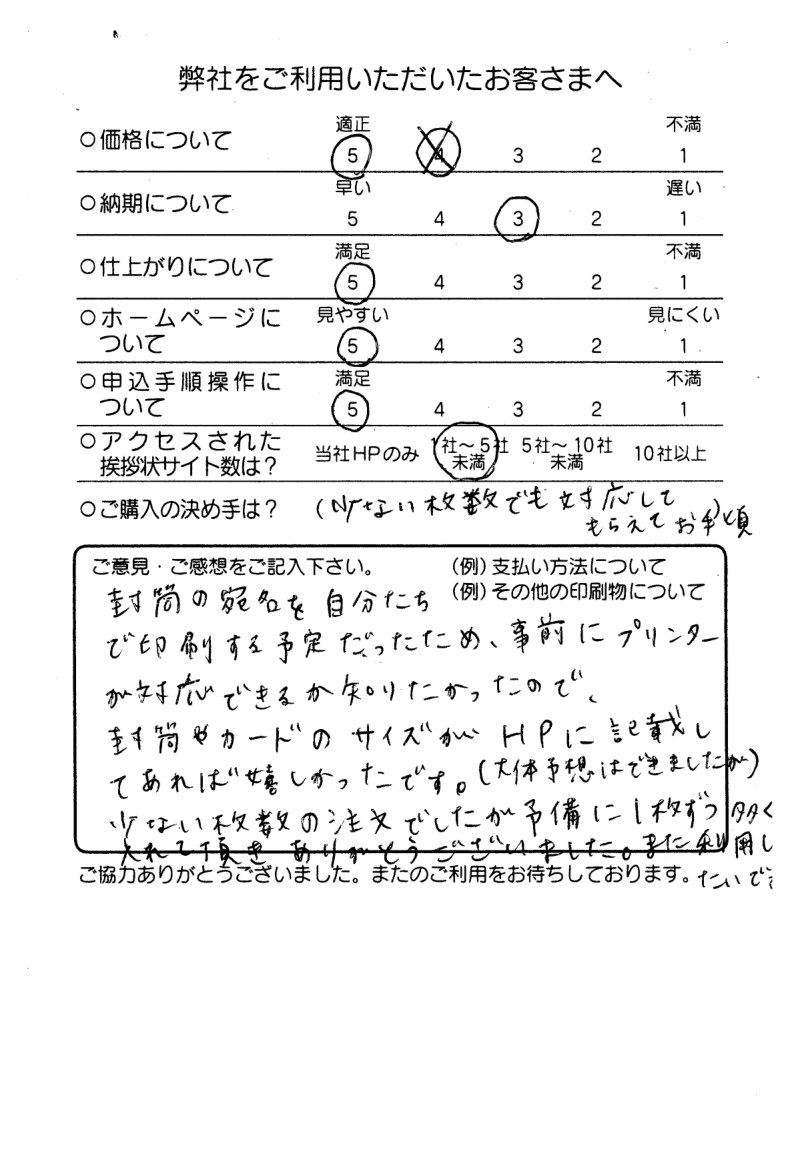 弊社をご利用いただいたお客さまへ
適正 不満
○価格について 5 4 3 2 1
早い 遅い
○納期について 5 4 3 2 1
満足 不満
○仕上がりについて 5 4 3 2 1
○ホームページに 見やすい 見にくい
ついて 5 4 3 2 1
○申込手順操作に 満足 不満
ついて 5 4 3 2 1
○アクセスされた 当社HPのみ 1社～5社 5社～10社 10社以上
挨拶状サイト数は? 未満 未満
○ご購入の決め手は? (少ない枚数でも対応して
もらえてお手頃)
ご意見・ご感想をご記入下さい。 (例)支払い方法について
(例)その他の印刷物について
封筒の宛名を自分たち
で印刷する予定だったため、事前にプリンター
が対応できるか知りたかったので、
封筒やカードのサイズがHPに記載し
てあれば嬉しかったです。(大体予想はできましたが)
少ない枚数の注文でしたが予備に1枚ずつ多く
入れて頂きありがとうございました。また利用し
たいで
ご協力ありがとうございました。またのご利用をお待ちしております。